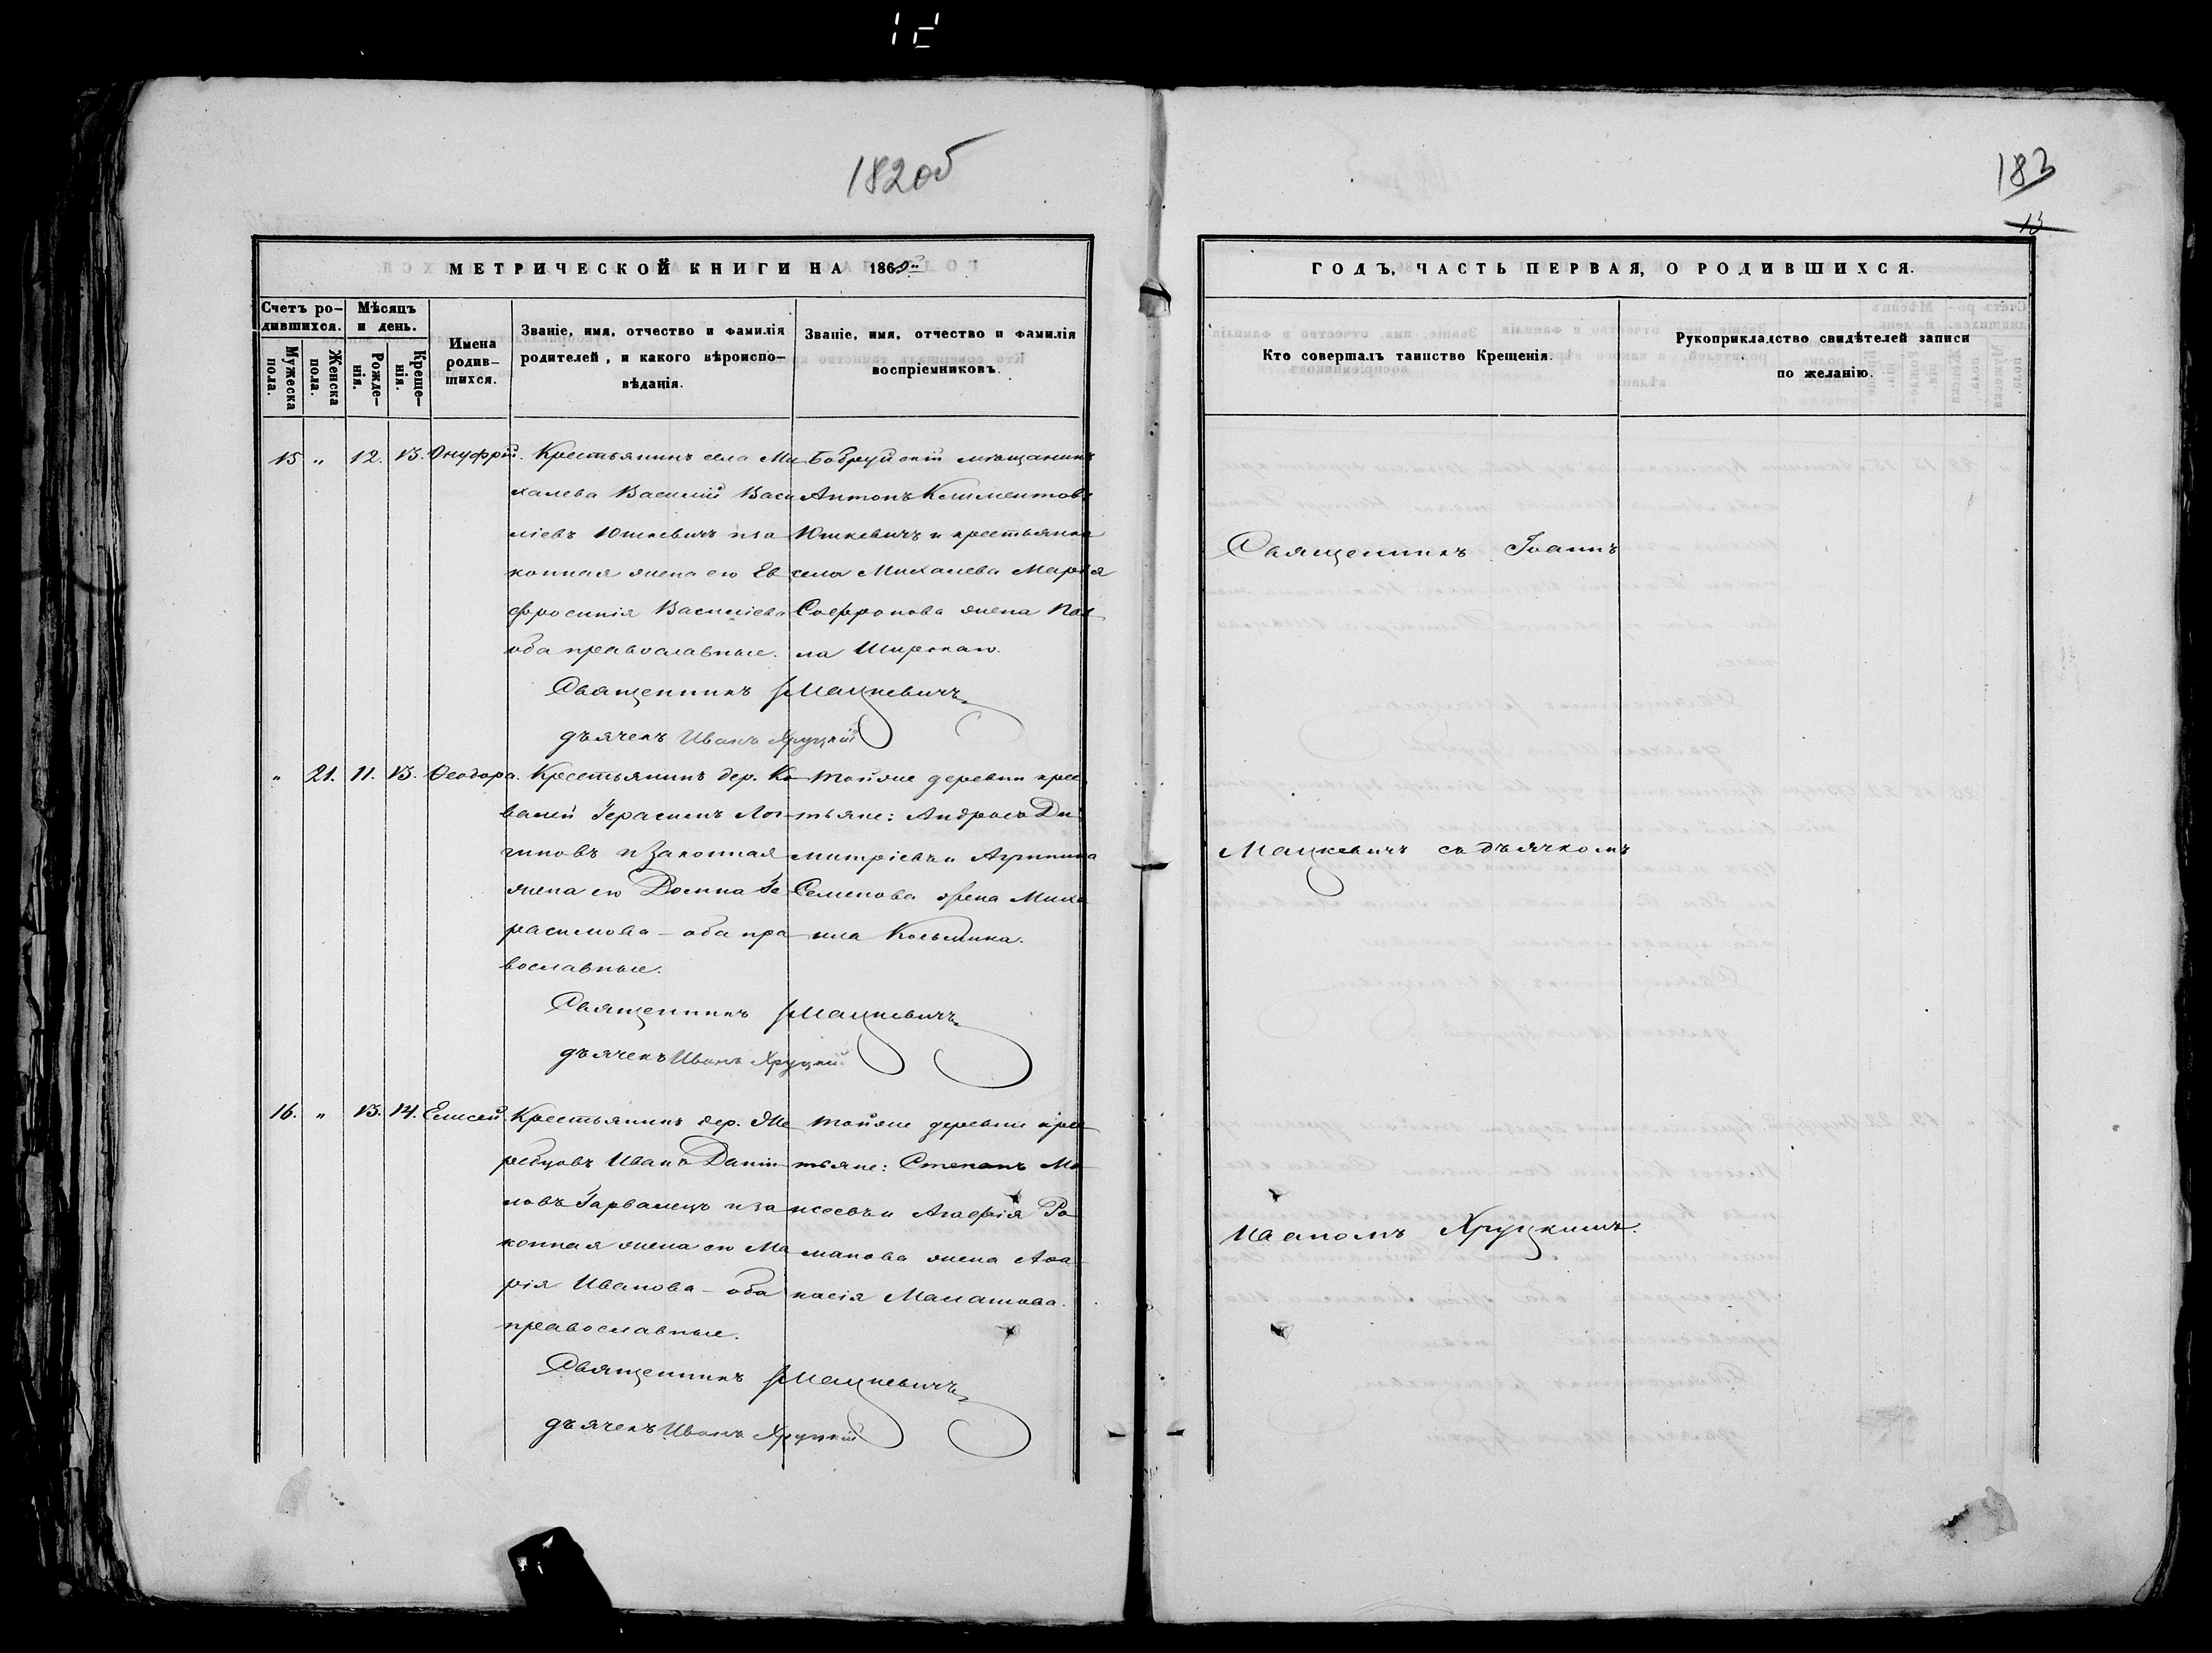 182 об
183
13
МЕТРИЧЕСКОЙ КНИГИ НА 1869
ГОДЪ, ЧАСТЬ ПЕРВАЯ, О РОДИВШИХСЯ.
Счетъ ро-
дившихся.
Мужеска
пола.
Женска
пола.
Мѣсяцъ
и день.
Рожде-
нія.
Креще-
нія.
Имена
родив-
шихся.
Званіе, имя, отчество и фамилія
родителей, и какого вѣроиспо-
вѣданія.
Званіе, имя, отчество и фамилія
воспріемниковъ.
Кто совершалъ таинство Крещенія.
Рукоприкладство свидѣтелей записи
по желанію.
15 " 12. 13. Онуфрій.
Крестьянинъ села Ми
халева Василій Васи
ліевъ Юшкевичъ и за
конная жена его Ев
фросинія Василіева
оба православные.
Бобруйскій мѣщанинъ
Антонъ Климентовъ
Юшкевичъ и крестьянка
села Михалева Марѳа
Софронова жена Пав
ла Ширскаго.
Священникъ Мацкевичъ
дьячекъ Иванъ Хруцкій
" 21. 11. 13. Ѳеодора.
Крестьянинъ дер. Ко
валей Герасимъ Лог
гиновъ и законная
жена его Домна Ге
расимова - оба пра
вославные.
тойже деревни крес
тьяне: Андрей Ди
митріевъ и Агрипина
Семенова жена Миха
ила Козьмина.
Священникъ Мацкевичъ
дьячекъ Иванъ Хруцкій
16. " 13. 14. Елисей
Крестьянинъ дер. Же
ребцовъ Иванъ Даніи
ловъ Гарвалецъ и за
конная жена его Ма
рія Иванова - оба
православные.
тойже деревни крес
тьяне: Степанъ Мо
исеевъ и Агафія Ро
манова жена Аѳа
насія Малашова.
Священникъ Мацкевичъ
дьячекъ Иванъ Хруцкій
Священникъ Іоаннъ
Мацкевичъ съ дьячкомъ
Иваномъ Хруцкимъ.